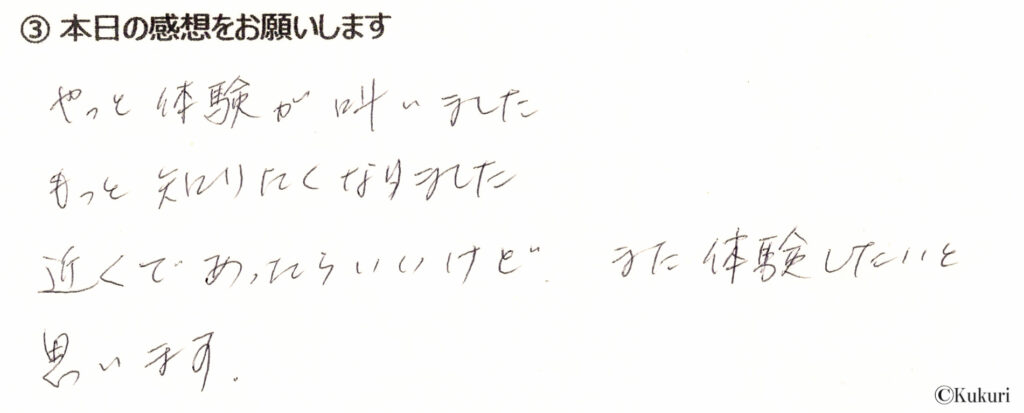 ③ 本日の感想をお願いします
やっと体験が叶いました
もっと知りたくなりました
近くであったらいいけど. また体験したいと
思います.
©Kukuri